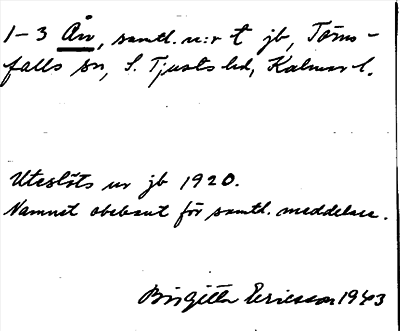 1-3 Ån, samtl. n:r t jb, Törns-
falls sn, S. Tjusts hd, Kalmar l.
Uteslöts ur jb 1920.
Namnet obekant för samtl. meddelare.
Birgitta Ericsson 1943